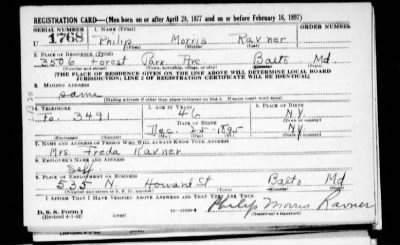 REGISTRATION CARD—(Men born on or after April 28, 1877 and on or before February 16, 1897)
SERIAL NUMBER 1. NAME (Print) ORDER NUMBER
U 1768 Philip Morris Ravner
2. PLACE OF RESIDENCE (Print)
3506 Forest Park Ave. Balto Md
(Number and street) (Town, township, village, or city) (County) (State)
[THE PLACE OF RESIDENCE GIVEN ON THE LINE ABOVE WILL DETERMINE LOCAL BOARD
JURISDICTION; LINE 2 OF REGISTRATION CERTIFICATE WILL BE IDENTICAL]
3. MAILING ADDRESS
same
[Mailing address if other than place indicated on line 2. If same insert word same]
4. TELEPHONE 5. AGE IN YEARS 6. PLACE OF BIRTH
46 N.Y.
Fo. 3491 DATE OF BIRTH
Dec. 25 1895 N.Y.
7. NAME AND ADDRESS OF PERSON WHO WILL ALWAYS KNOW YOUR ADDRESS
Mrs Freda Ravner
8. EMPLOYER'S NAME AND ADDRESS
Self
9. PLACE OF EMPLOYMENT OR BUSINESS
535 N Howard St Balto Md
(Number and street or R. F. D. number) (Town) (County) (State)
I AFFIRM THAT I HAVE VERIFIED ABOVE ANSWERS AND THAT THEY ARE TRUE.
D. S. S. Form 1
(Revised 4-1-42)
Philip Morris Ravner
(Registrant's signature)